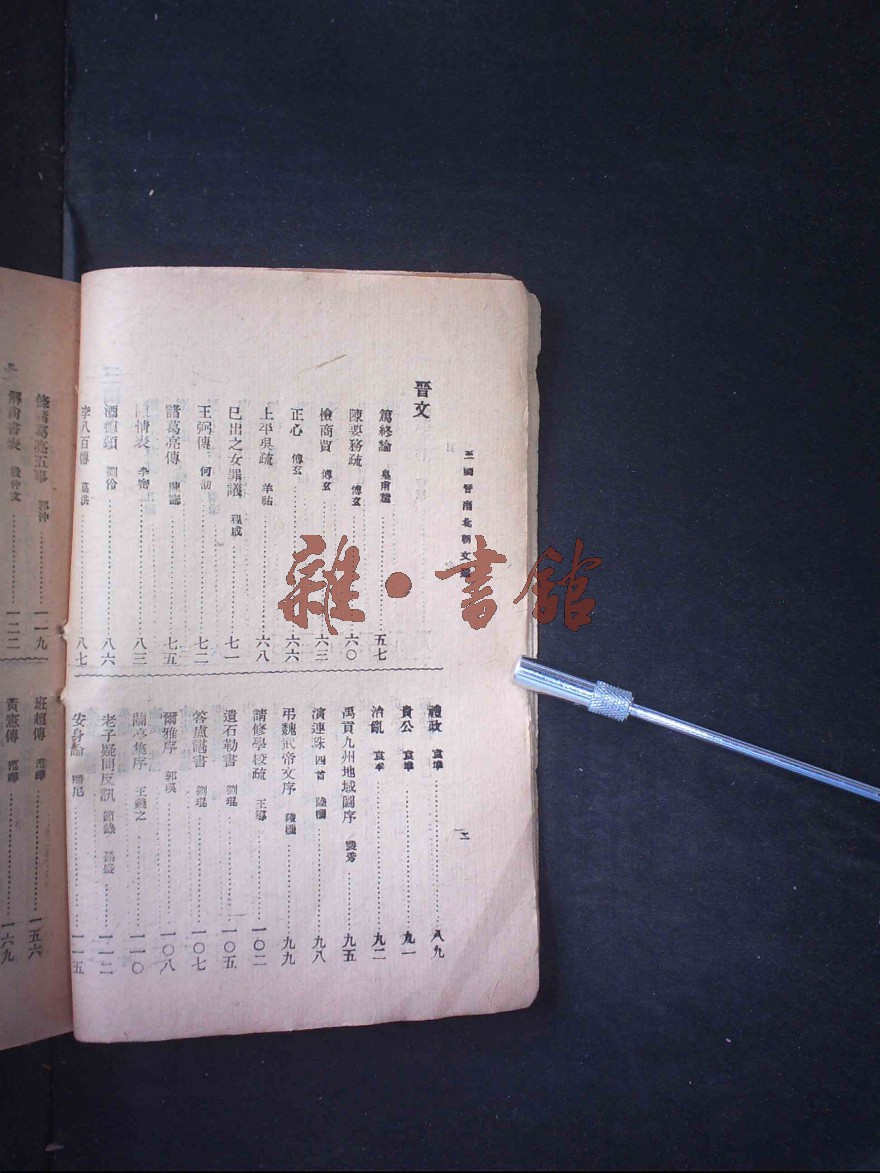 三國晉南北朝文
二
晉文
篤終論 皇甫謐 五七
陳要務疏 傅玄 六〇
檢商賈 傅玄 六三
正心 傅玄 六六
上平吳疏 羊祜 六八
已出之女罪議 程咸 七一
王弼傳 何劭 七二
諸葛亮傳 陳壽 七五
情表 李密 八三
酒德頌 劉伶 八六
李八百傳 葛洪 八七
禮政 袁準 八九
貴公 袁準 九一
治亂 袁準 九二
禹貢九州地域圖序 裴秀 九五
演連珠四首 陸機 九八
弔魏武帝文序 陸機 九九
請修學校疏 王導 一〇二
遺石勒書 劉琨 一〇五
答盧諶書 劉琨 一〇七
爾雅序 郭璞 一〇八
蘭亭集序 王羲之 一一〇
老子疑問反訊 節錄 孫盛 一一二
安身論 潘尼 一一五
條諸葛亮五事 郭沖 一一九
解尚書表 殷仲文 一二二
班超傳 范曄 一五六
黃憲傳 范曄 一六九
雜·書館